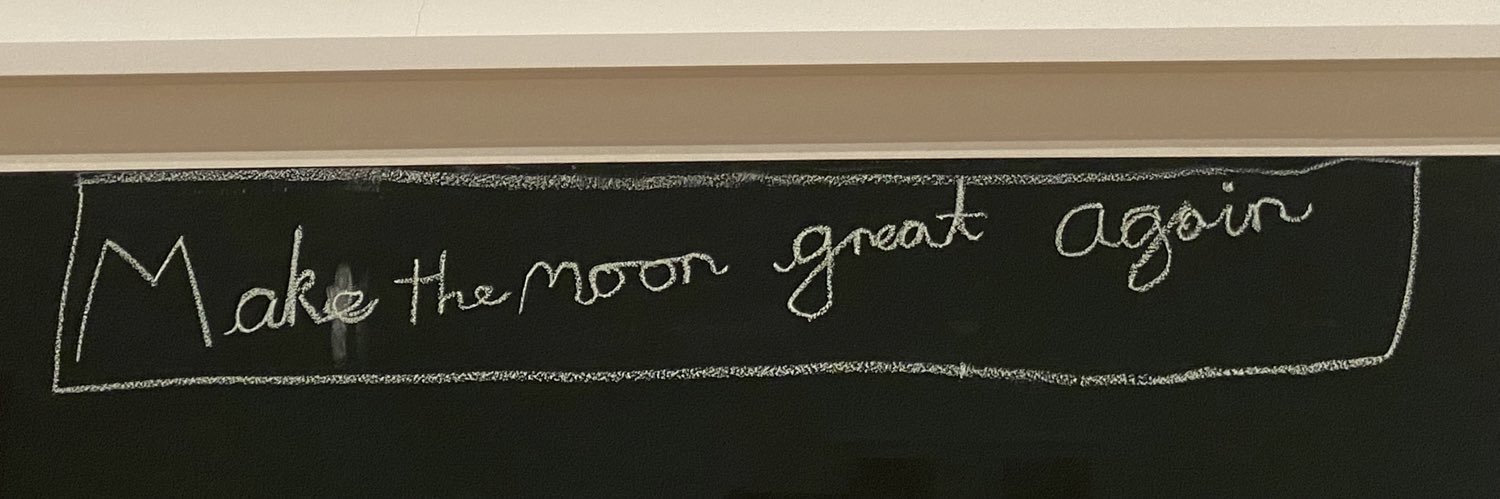 Make the moon great again